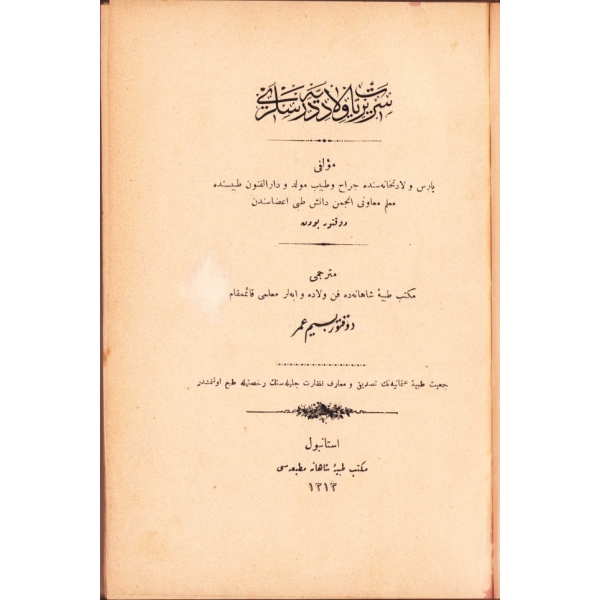 سريريات ولاديه درسلرى
مؤلفى
پارس ولادتخانه‌سنده جراح و طبيب مولد و دارالفنون طبيسنده
معلم معاونى انجمن دانش طبى اعضاسندن
دوقتور بودن
مترجمى
مكتب طبيۀ شاهانه‌ده فن ولاده و ابه‌لر معلمى قائممقام
دوقتور بسيم عمر
جمعيت طبيۀ عثمانيه‌نك تصديق و معارف نظارت جليله‌سنك رخصتيله طبع اولنمشدر
استانبول
مكتب طبيۀ شاهانه مطبعه‌سى
١٣١٣